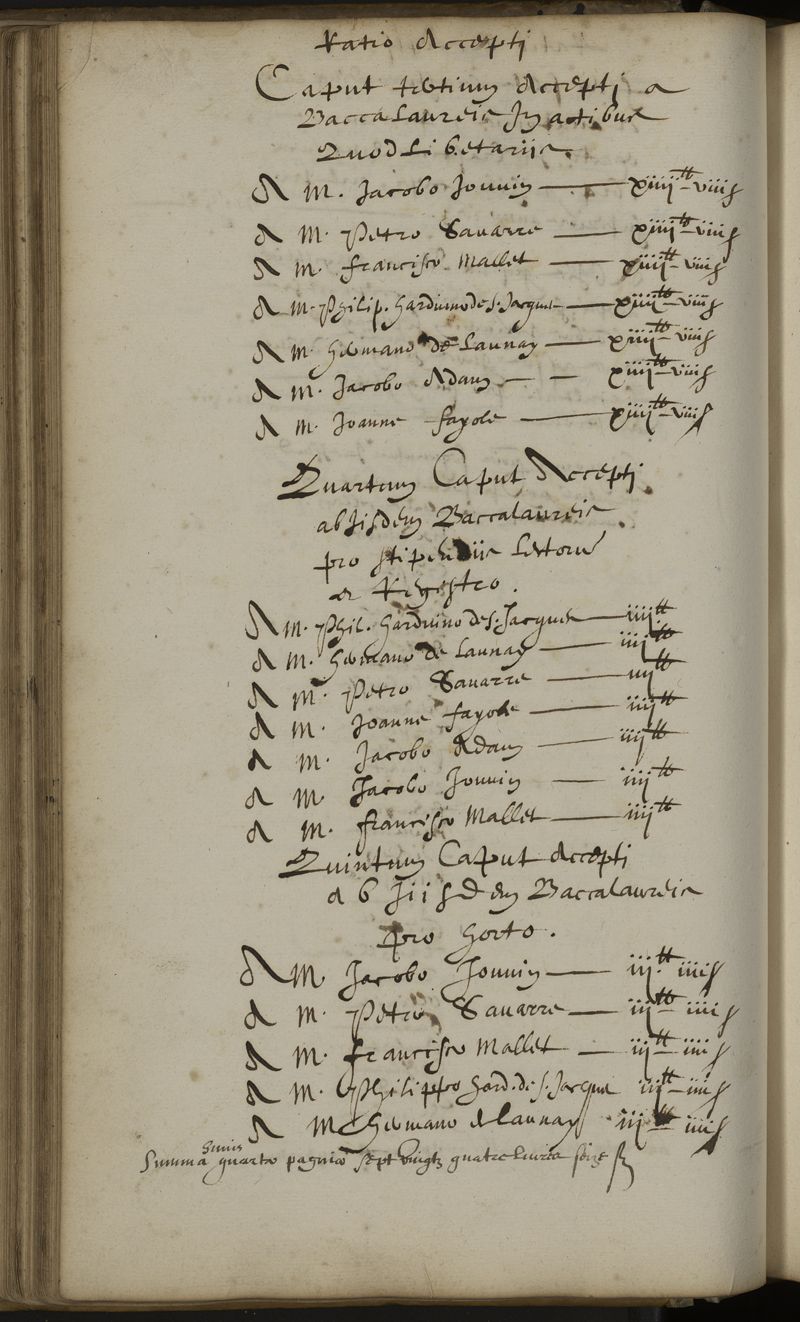 Ratio Accepti
Caput tertium Accepti a
Baccalaureis In actibus
Quodlibetariis.
A M. Jacobo Jouuin — xiiii tt viii s
A M. Petro Sauarre — xiiii tt viii s
A M. francisco Mallet — xiiii tt viii s
A M. Philip. Harduino de s. Jacques — xiiii tt viii s
A M. Germano de Launay — xiiii tt viii s
A M. Jacobo Adam — — xiiii tt viii s
A M. Joanne fayole — xiiii tt viii s
Quartum Caput Accepti
ab Iisdem Baccalaureis
pro stipendiis
et Registro.
A M. Phil. Harduino de s. Jacques — iiii tt
A M. Germano de Launay — iiii tt
A M. Petro Sauarre — iiii tt
A M. Joanne fayole — iiii tt
A M. Jacobo Adam — iiii tt
A M. Jacobo Jouuin — iiii tt
A M. francisco Mallet — iiii tt
Quintum Caput Accepti
ab Iisdem Baccalaureis
pro horto.
A M Jacobo Jouuin — iii tt iiii s
A M. Petro Sauarre — iii tt iiii s
A M. francisco Mallet — iii tt iiii s
A M. Philippo Hard. de s. Jacques iii tt iiii s
A M Germano de Launay iii tt iiii s
Summa huius quartæ paginæ sept vingtz quatre liures seize s